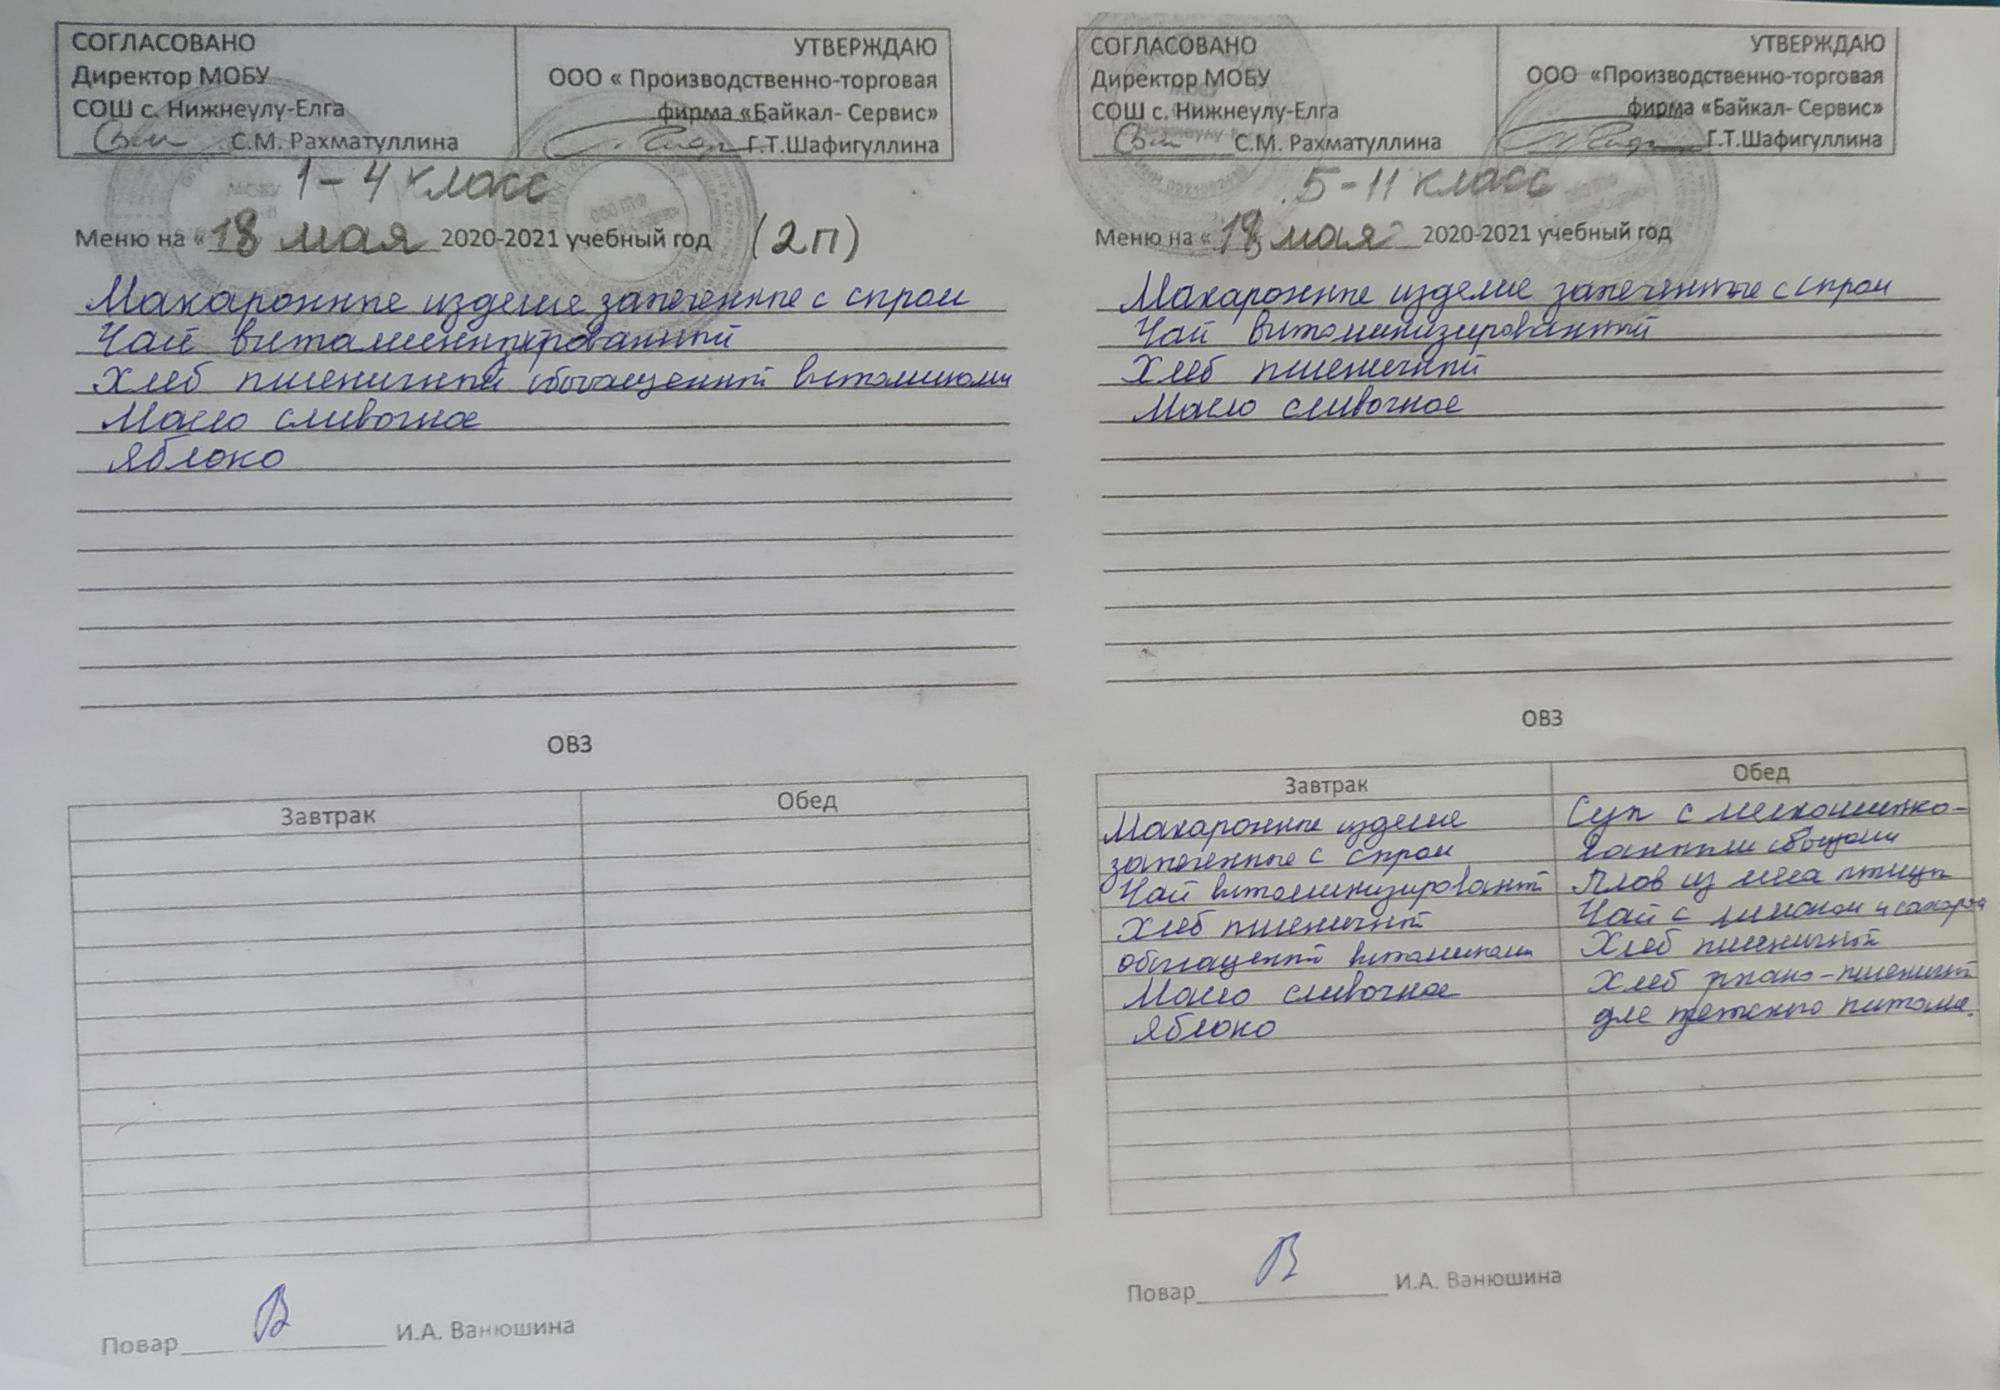 СОГЛАСОВАНО
Директор МОБУ
СОШ с. Нижнеулу-Елга
С.М. Рахматуллина
УТВЕРЖДАЮ
ООО « Производственно-торговая
фирма «Байкал- Сервис»
Г.Т.Шафигуллина
1-4 класс
Меню на « 18 мая 2020-2021 учебный год (2п)
Макаронные изделие запеченные с сыром
Чай витаминизированный
Хлеб пшеничный обогащенный витаминами
Масло сливочное
Яблоко
ОВЗ
Завтрак Обед
Повар И.А. Ванюшина
СОГЛАСОВАНО
Директор МОБУ
СОШ с. Нижнеулу-Елга
С.М. Рахматуллина
УТВЕРЖДАЮ
ООО «Производственно-торговая
фирма «Байкал- Сервис»
Г.Т.Шафигуллина
5-11 класс
Меню на « 18 мая 2020-2021 учебный год
Макаронные изделие запеченные с сыром
Чай витаминизированный
Хлеб пшеничный
Масло сливочное
ОВЗ
Завтрак
Макаронные изделие
запеченные с сыром
Чай витаминизированный
Хлеб пшеничный
обогащенный витаминами
Масло сливочное
Яблоко
Обед
Суп с мелкошинко-
ванными овощами
Плов из мяса птицы
Чай с лимоном и сахаром
Хлеб пшеничный
Хлеб ржано-пшеничный
для детского питания.
Повар И.А. Ванюшина